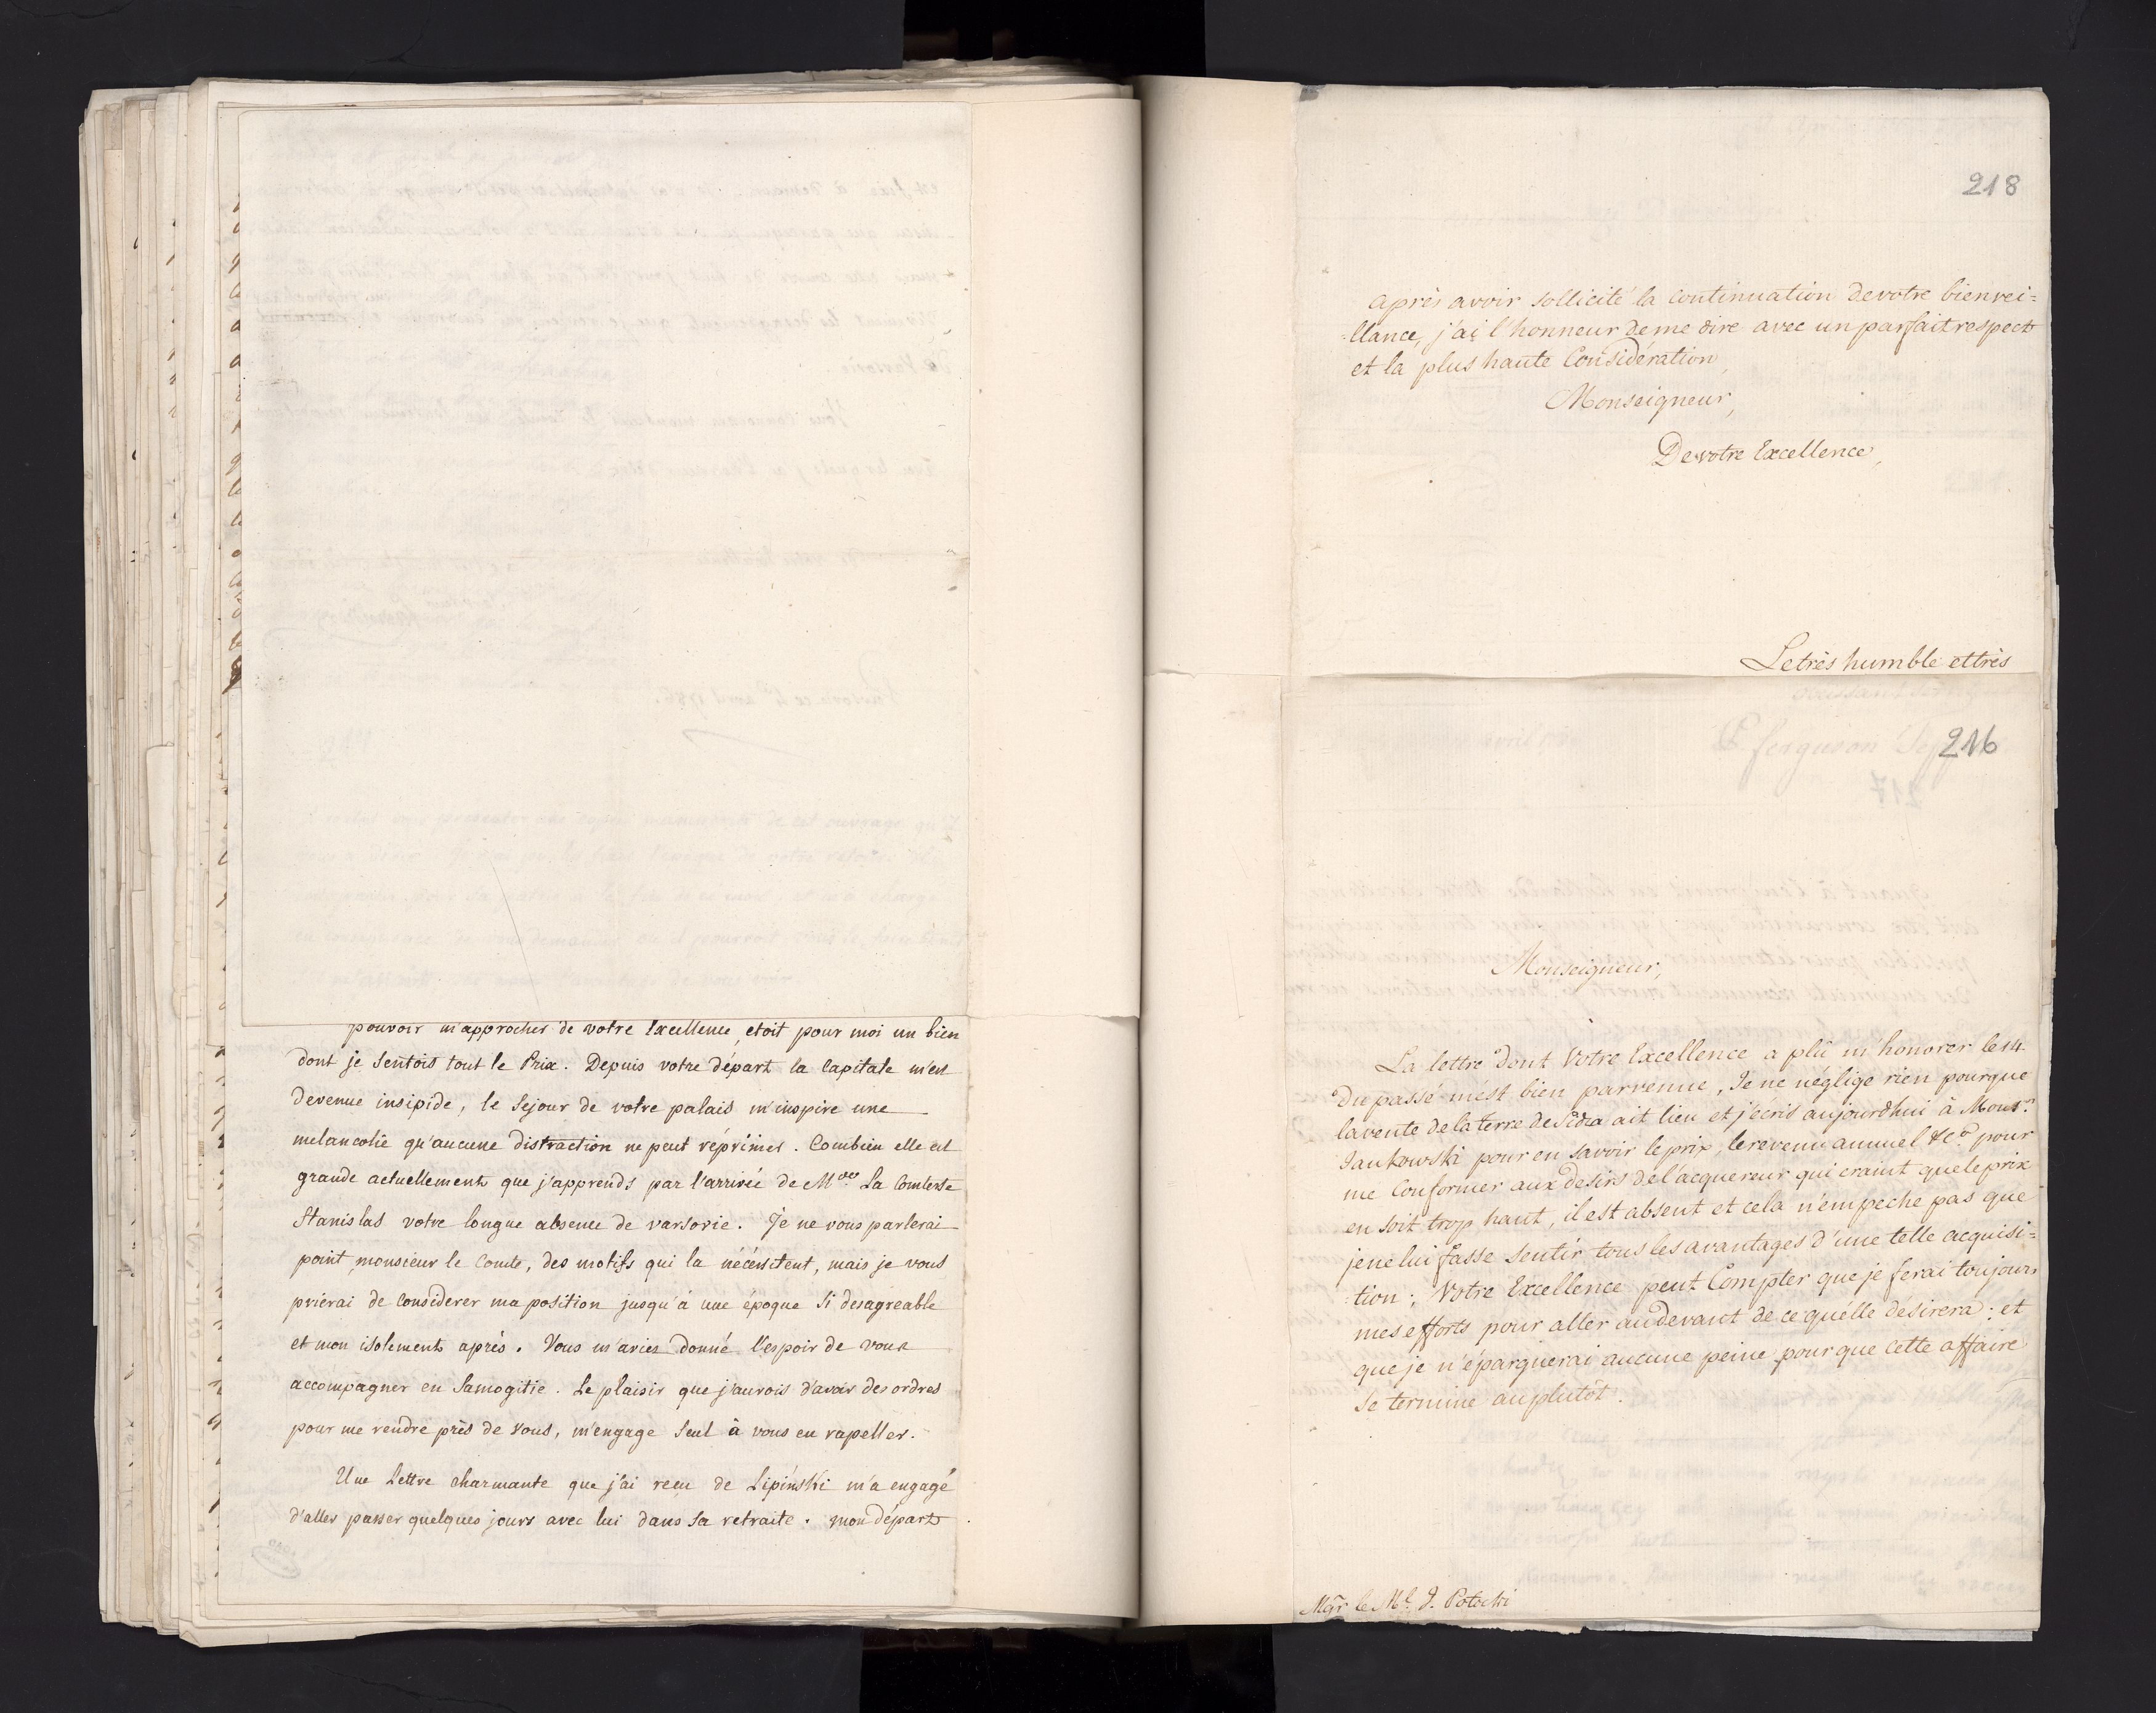 pouvoir m'approcher de votre Excellence, etoit pour moi un bien
dont je sentois tout le Prix. Depuis votre départ la Capitale m'est
devenue insipide, le Sejour de votre palais m'inspire une
melancolie qu'aucune distraction ne peut réprimer. Combien elle est
grande actuellement que j'apprends par l'arrivée de Mde La Comtesse
Stanislas votre longue absence de varsovie. Je ne vous parlerai
point, monsieur le Comte, des motifs qui la nécéssitent, mais je vous
prierai de Considerer ma position jusqu'à une époque Si desagreable
et mon isolement après. Vous m'aviez donné l'espoir de vous
accompagner en Samogitie. Le plaisir que j'aurois d'avoir des ordres
pour me rendre près de vous, m'engage Seul à vous en rapeller.
Une Lettre charmante que j'ai reçu de Lipinski m'a engagé
d'aller passer quelques jours avec lui dans Sa retraite. mon départ
218
après avoir sollicité la Continuation de votre bienvei=
=llance, j'ai l'honneur de me dire avec un parfait respect
et la plus haute Considération,
Monseigneur,
De votre Excellence,
Le très humble et très
216
Monseigneur,
La lettre dont Votre Excellence a plû m'honorer le 14
du passé m'est bien parvenue, Je ne néglige rien pour que
la vente de la terre de Sidra ait lieu et j'écris aujourdhui à Monsr.
Jankowski pour en savoir le prix, le revenu annuel &ca. pour
me Conformer aux desirs de l'acquereur qui craint que le prix
en soit trop haut, il est absent et cela n'empeche pas que
je ne lui fasse Sentir tous les avantages d'une telle acquisi=
=tion; Votre Excellence peut Compter que je ferai toujours
mes efforts pour aller au devant de ce qu'elle désirera; et
que je n'épargnerai aucune peine pour que Cette affaire
se termine au plutôt.
Mgr le Ml. J. Potocki